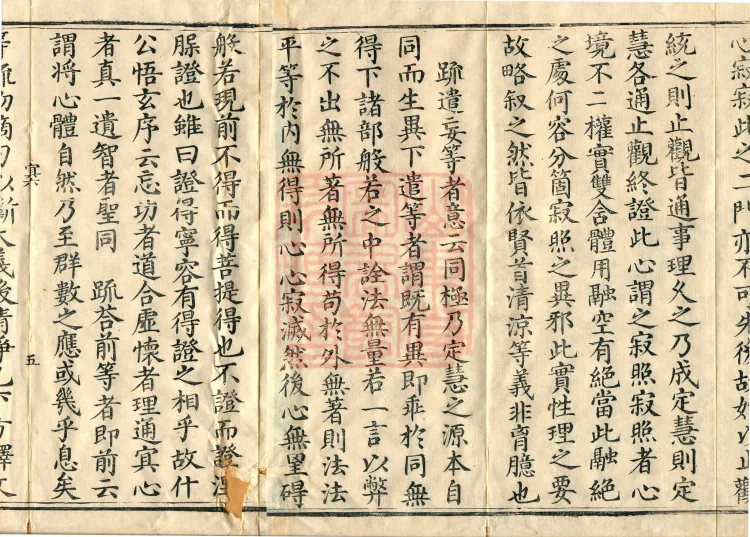 心寂寂此之二門亦不可先後故妙以止觀
統之則止觀皆通事理久之乃成定慧則定
慧各通止觀終證此心謂之寂照寂照者心
境不二權實雙含體用融空有絕當此融絕
之處何容分箇寂照之異邪此實性理之要
故略叙之然皆依賢首清涼等義非肓臆也
䟽遣妄等者意云同極乃定慧之源本自
同而生異下遣等者謂既有異即乖於同無
得下諸部般若之中詮法無量若一言以弊
之不出無所著無所得苟於外無著則法法
平等於內無得則心心寂滅然後心無罣碍
般若現前不得而得菩提得也不證而證涅
䐗證也雖曰證得寧容有得證之相乎故什
公悟玄序云忘功者道合虛懷者理通冥心
者真一遺智者聖同　䟽荅前等者即前云
謂將心體自然乃至群數之應或幾乎息矣
冥　五